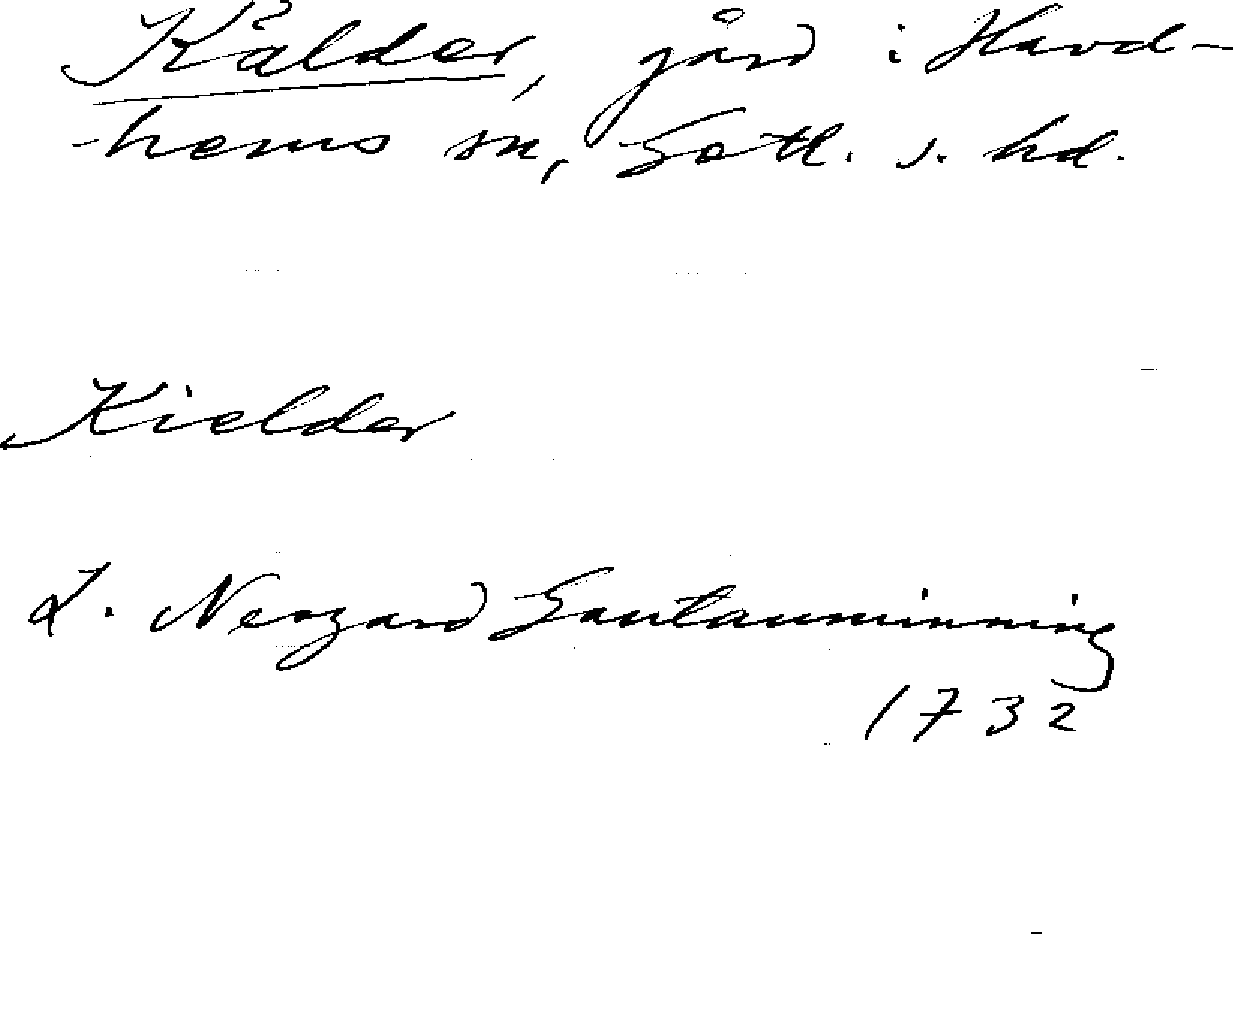 Kälder, gård i Havd-
hems sn, Gotl. s. hd.
Kielder
L. Neogard Gautauminning
1732